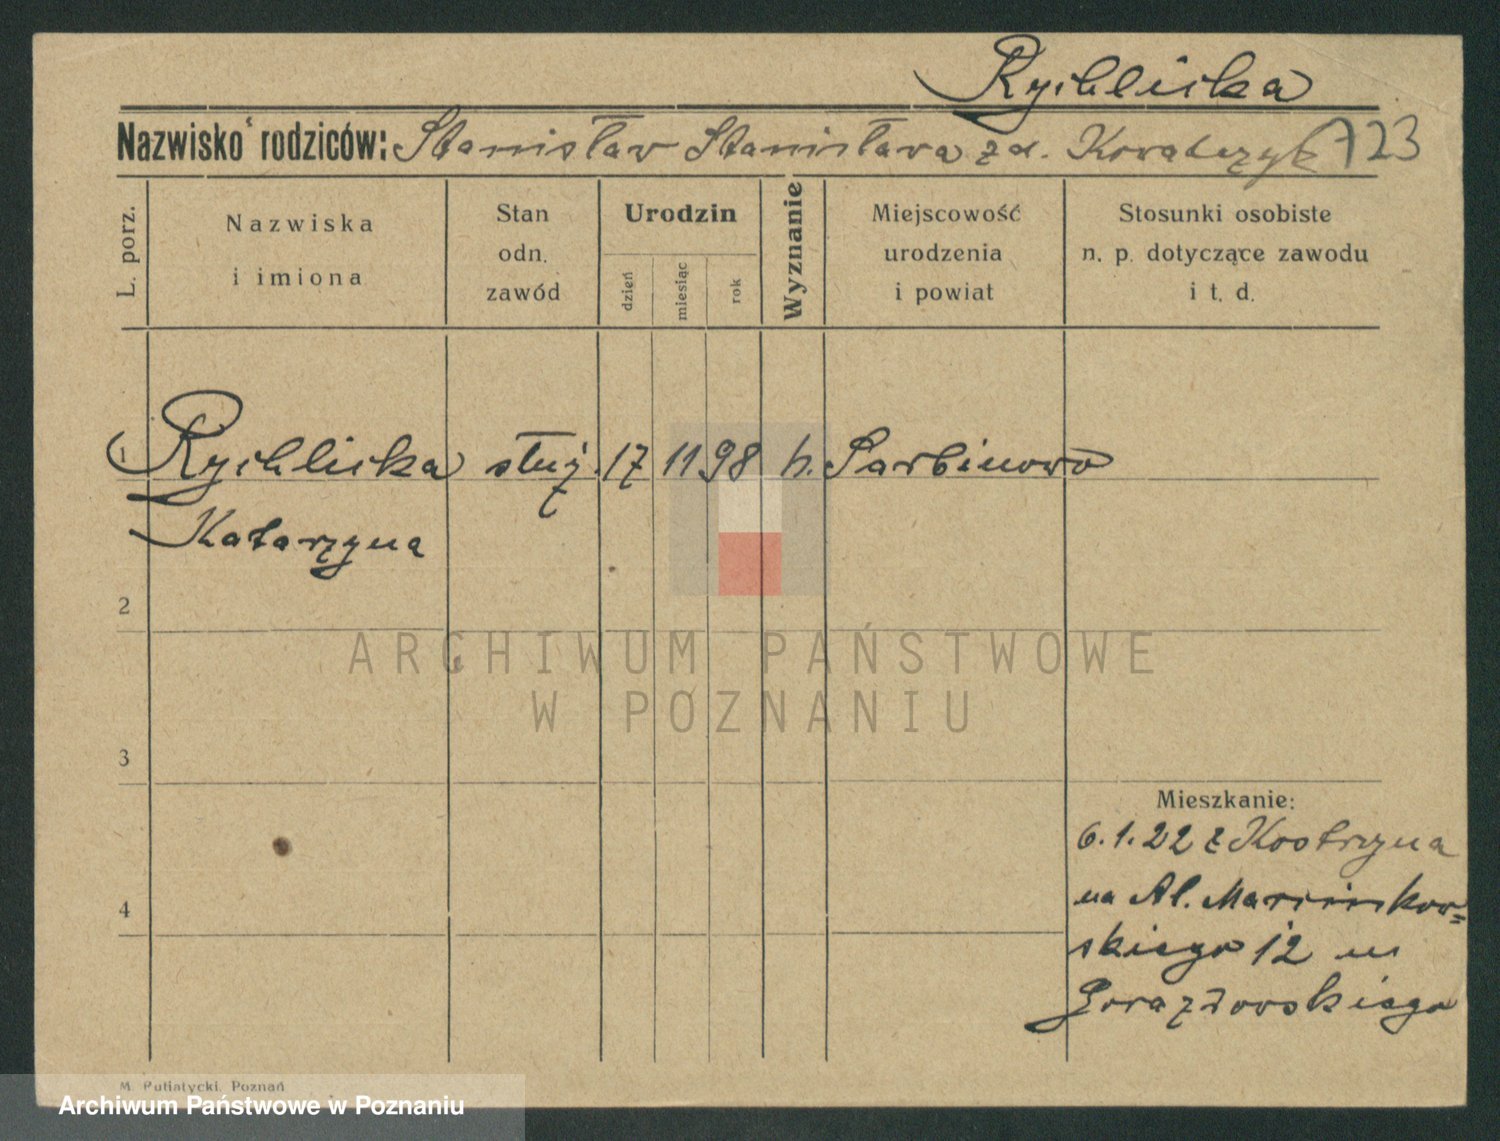 Rychlicka
Nazwisko rodziców: Stanisław Stanisława zd. Kowalczyk 123
L. porz.
Nazwiska
i imiona
Stan
odn.
zawód
Urodzin
dzień
miesiąc
rok
Wyznanie
Miejscowość
urodzenia
i powiat
Stosunki osobiste
n. p. dotyczące zawodu
i t. d.
1 Rychlicka służ. 17 11 98 k. Sarbinowo
Katarzyna
2
3
4
Mieszkanie:
6.1.22 z Kostrzyna
na Al. Marcinkow=
skiego 12 u
Gorazdowskiego
M. Putiatycki, Poznań
ARCHIWUM PAŃSTWOWE
W POZNANIU
Archiwum Państwowe w Poznaniu